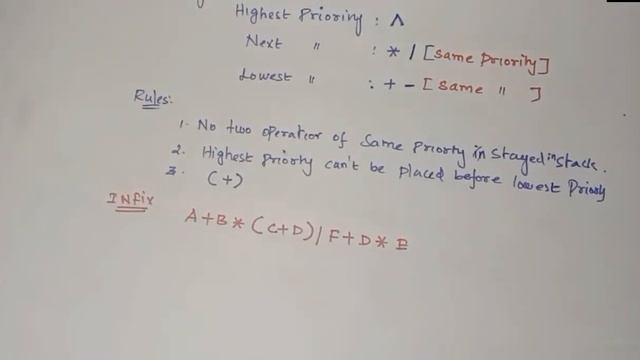 Highest Priority : ^
Next " : * / [same Priority]
Lowest " : + - [same " ]
Rules:
1. No two operator of same Priorty in stayed in stack.
2. Highest priority can't be placed before lowest Priority
3. (+)
INfix
A+B*(C+D)/F+D*E